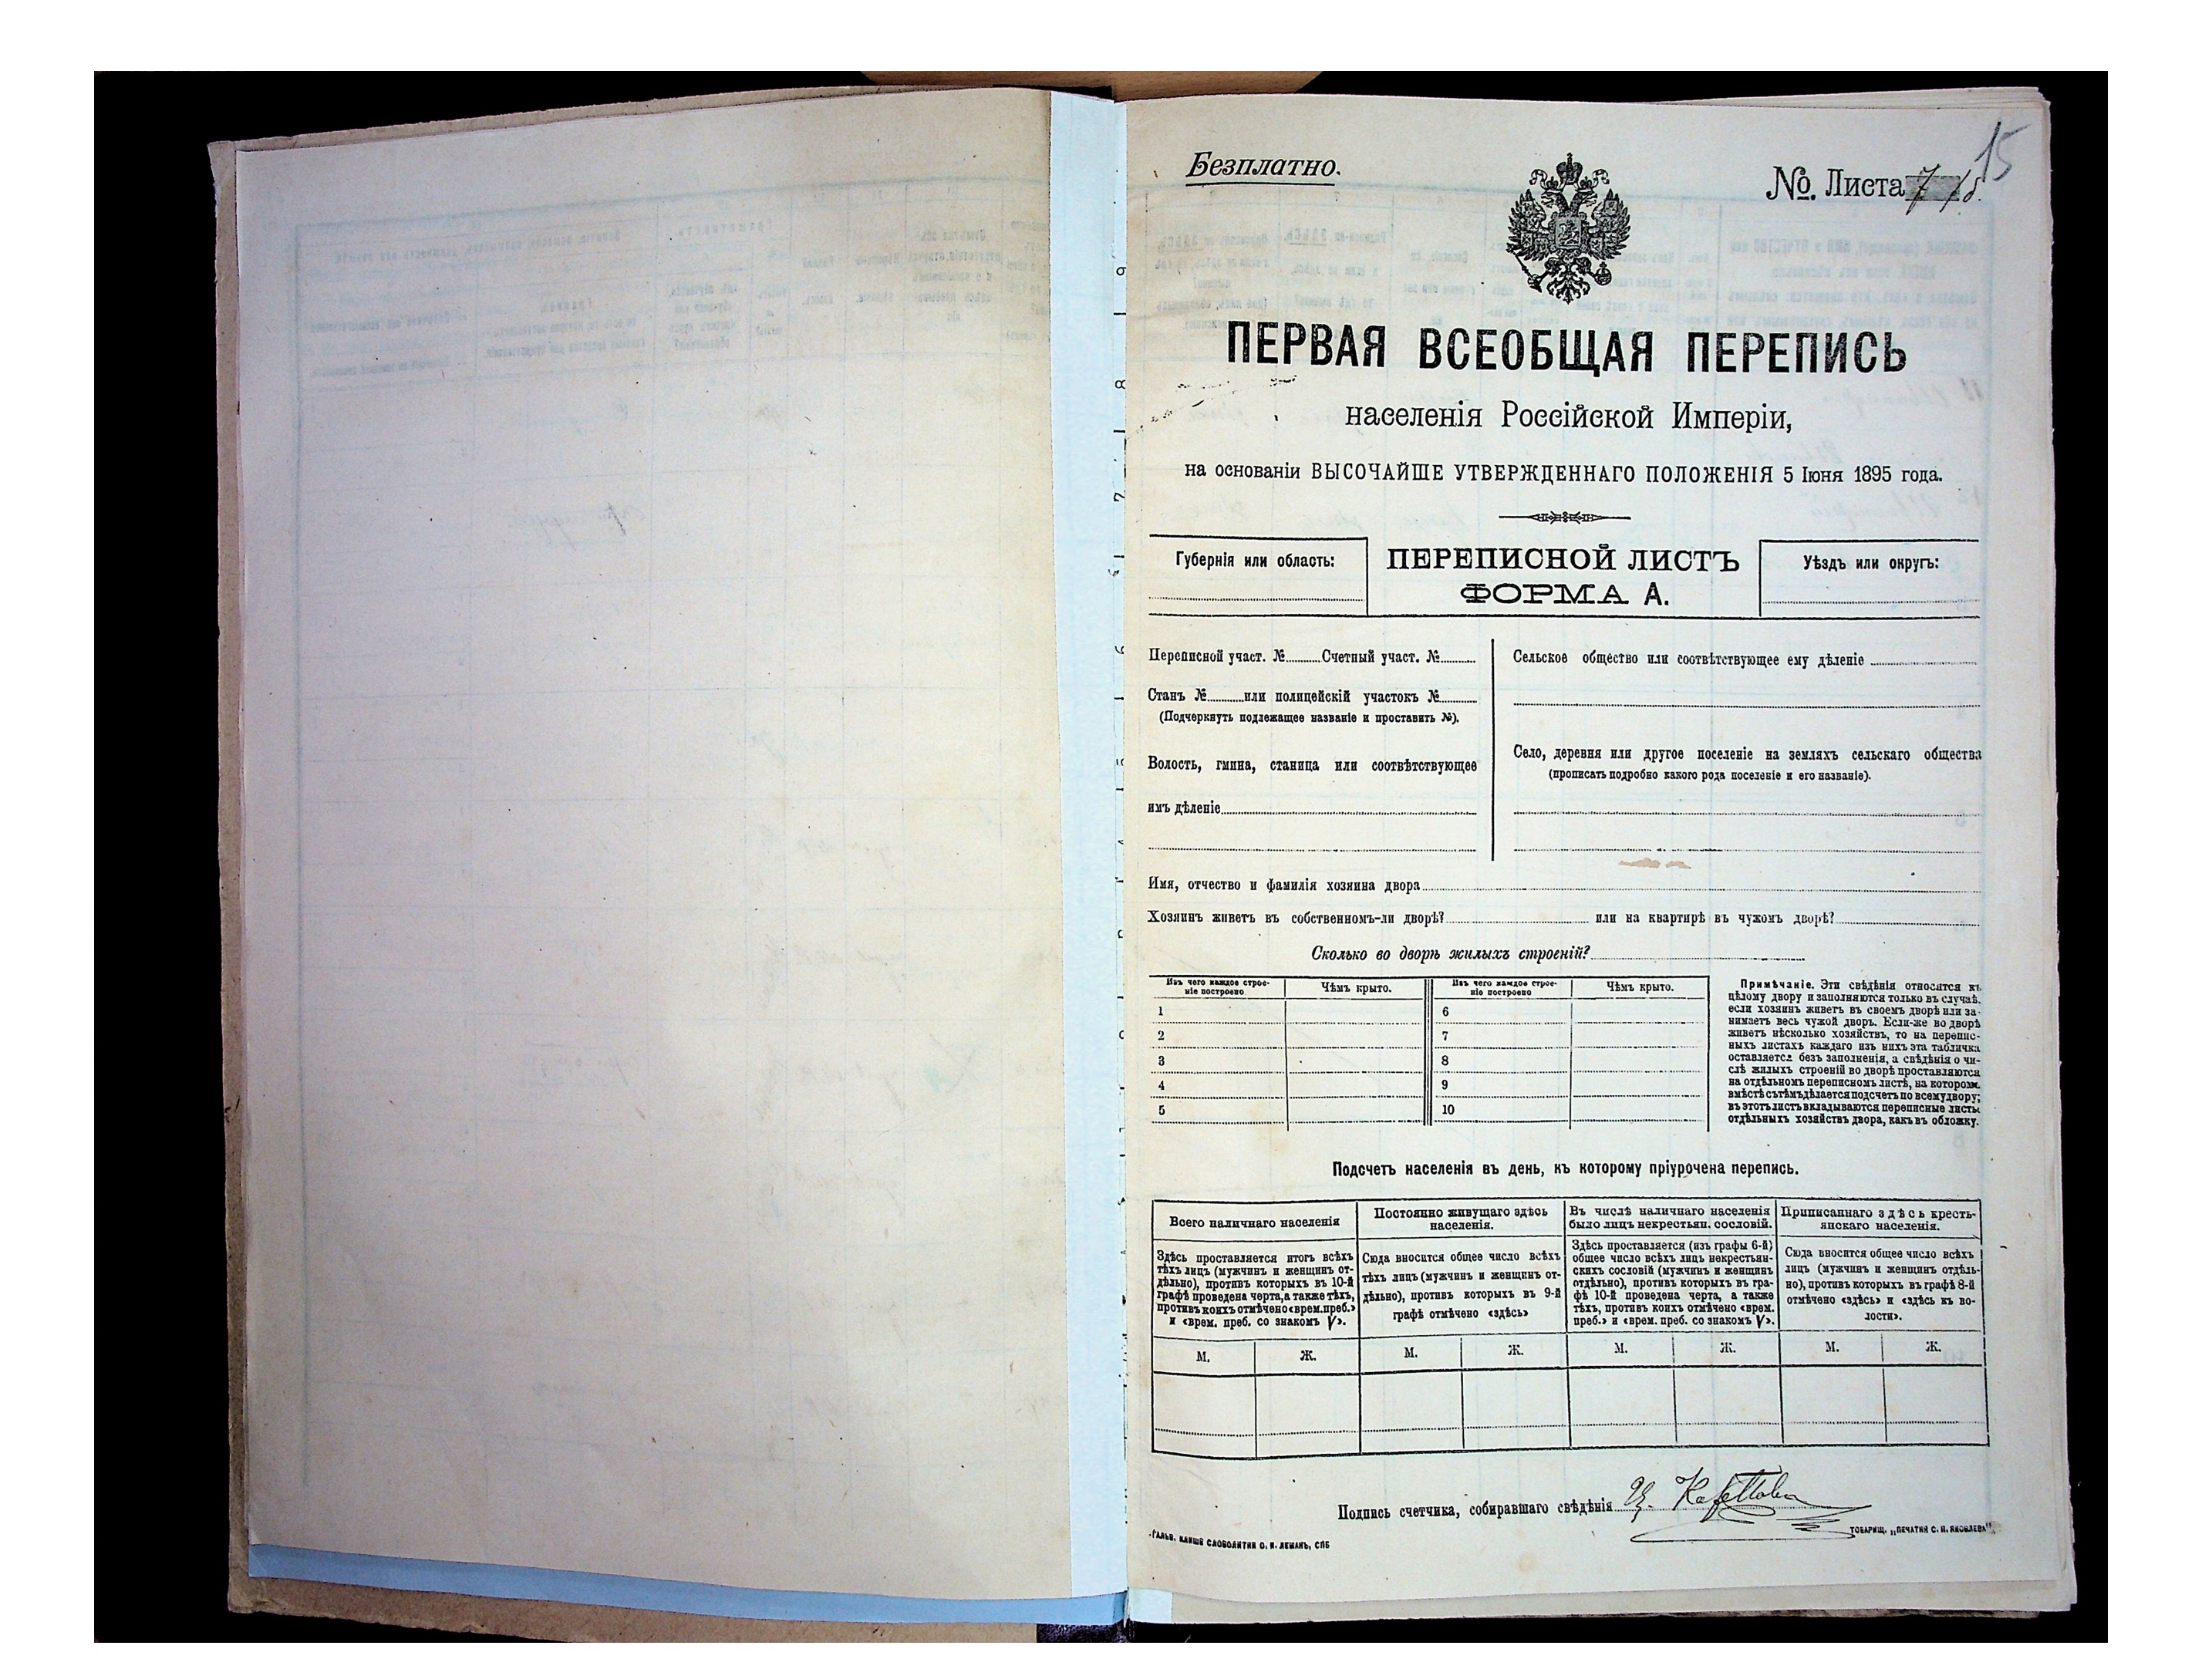 15
Безплатно.
№. Листа 7
ПЕРВАЯ ВСЕОБЩАЯ ПЕРЕПИСЬ
населенія Россійской Имперіи,
на основаніи ВЫСОЧАЙШЕ УТВЕРЖДЕННАГО ПОЛОЖЕНІЯ 5 Іюня 1895 года.
Губернія или область:
ПЕРЕПИСНОЙ ЛИСТЪ
ФОРМА А.
Уѣздъ или округъ:
Переписной участ. № Счетный участ. №
Станъ № или полицейскій участокъ №
(Подчеркнуть подлежащее названіе и проставить №).
Волость, гмина, станица или соотвѣтствующее
имъ дѣленіе
Сельское общество или соотвѣтствующее ему дѣленіе
Село, деревня или другое поселеніе на земляхъ сельскаго общества
(прописать подробно какого рода поселеніе и его названіе).
Имя, отчество и фамилія хозяина двора
Хозяинъ живетъ въ собственномъ-ли дворѣ? или на квартирѣ въ чужомъ дворѣ?
Сколько во дворѣ жилыхъ строеній?
Изъ чего каждое строе-
ніе построено
Чѣмъ крыто.
Изъ чего каждое строе-
ніе построено
Чѣмъ крыто.
1
2
3
4
5
6
7
8
9
10
Примѣчаніе. Эти свѣдѣнія относятся къ
цѣлому двору и заполняются только въ случаѣ,
если хозяинъ живетъ въ своемъ дворѣ или за-
нимаетъ весь чужой дворъ. Если-же во дворѣ
живетъ нѣсколько хозяйствъ, то на перепис-
ныхъ листахъ каждаго изъ нихъ эта табличка
оставляется безъ заполненія, а свѣдѣнія о чи-
слѣ жилыхъ строеній во дворѣ проставляются
на отдѣльномъ переписномъ листѣ, на которомъ
вмѣстѣ съ тѣмъ дѣлается подсчетъ по всему двору;
въ этотъ листъ вкладываются переписные листы
отдѣльныхъ хозяйствъ двора, какъ въ обложку.
Подсчетъ населенія въ день, къ которому пріурочена перепись.
Всего наличнаго населенія
Здѣсь проставляется итогъ всѣхъ
тѣхъ лицъ (мужчинъ и женщинъ от-
дѣльно), противъ которыхъ въ 10-й
графѣ проведена черта, а также тѣхъ,
противъ коихъ отмѣчено «врем. преб.»
и «врем. преб. со знакомъ V».
Постоянно живущаго здѣсь
населенія.
Сюда вносится общее число всѣхъ
тѣхъ лицъ (мужчинъ и женщинъ от-
дѣльно), противъ которыхъ въ 9-й
графѣ отмѣчено «здѣсь»
Въ числѣ наличнаго населенія
было лицъ некрестьян. сословій.
Здѣсь проставляется (изъ графы 6-й)
общее число всѣхъ лицъ некрестьян-
скихъ сословій (мужчинъ и женщинъ
отдѣльно), противъ которыхъ въ гра-
фѣ 10-й проведена черта, а также
тѣхъ, противъ коихъ отмѣчено «врем.
преб.» и «врем. преб. со знакомъ V».
Приписаннаго здѣсь кресть-
янскаго населенія.
Сюда вносится общее число всѣхъ
лицъ (мужчинъ и женщинъ отдѣль-
но), противъ которыхъ въ графѣ 8-й
отмѣчено «здѣсь» и «здѣсь къ во-
лости».
М. Ж. М. Ж. М. Ж. М. Ж.
Подпись счетчика, собиравшаго свѣдѣнія
ГАЛЬВ. КЛИШЕ СЛОВОЛИТНИ О. И. ЛЕМАНЪ, СПБ
ТОВАРИЩ. „ПЕЧАТНЯ С. П. ЯКОВЛЕВА"